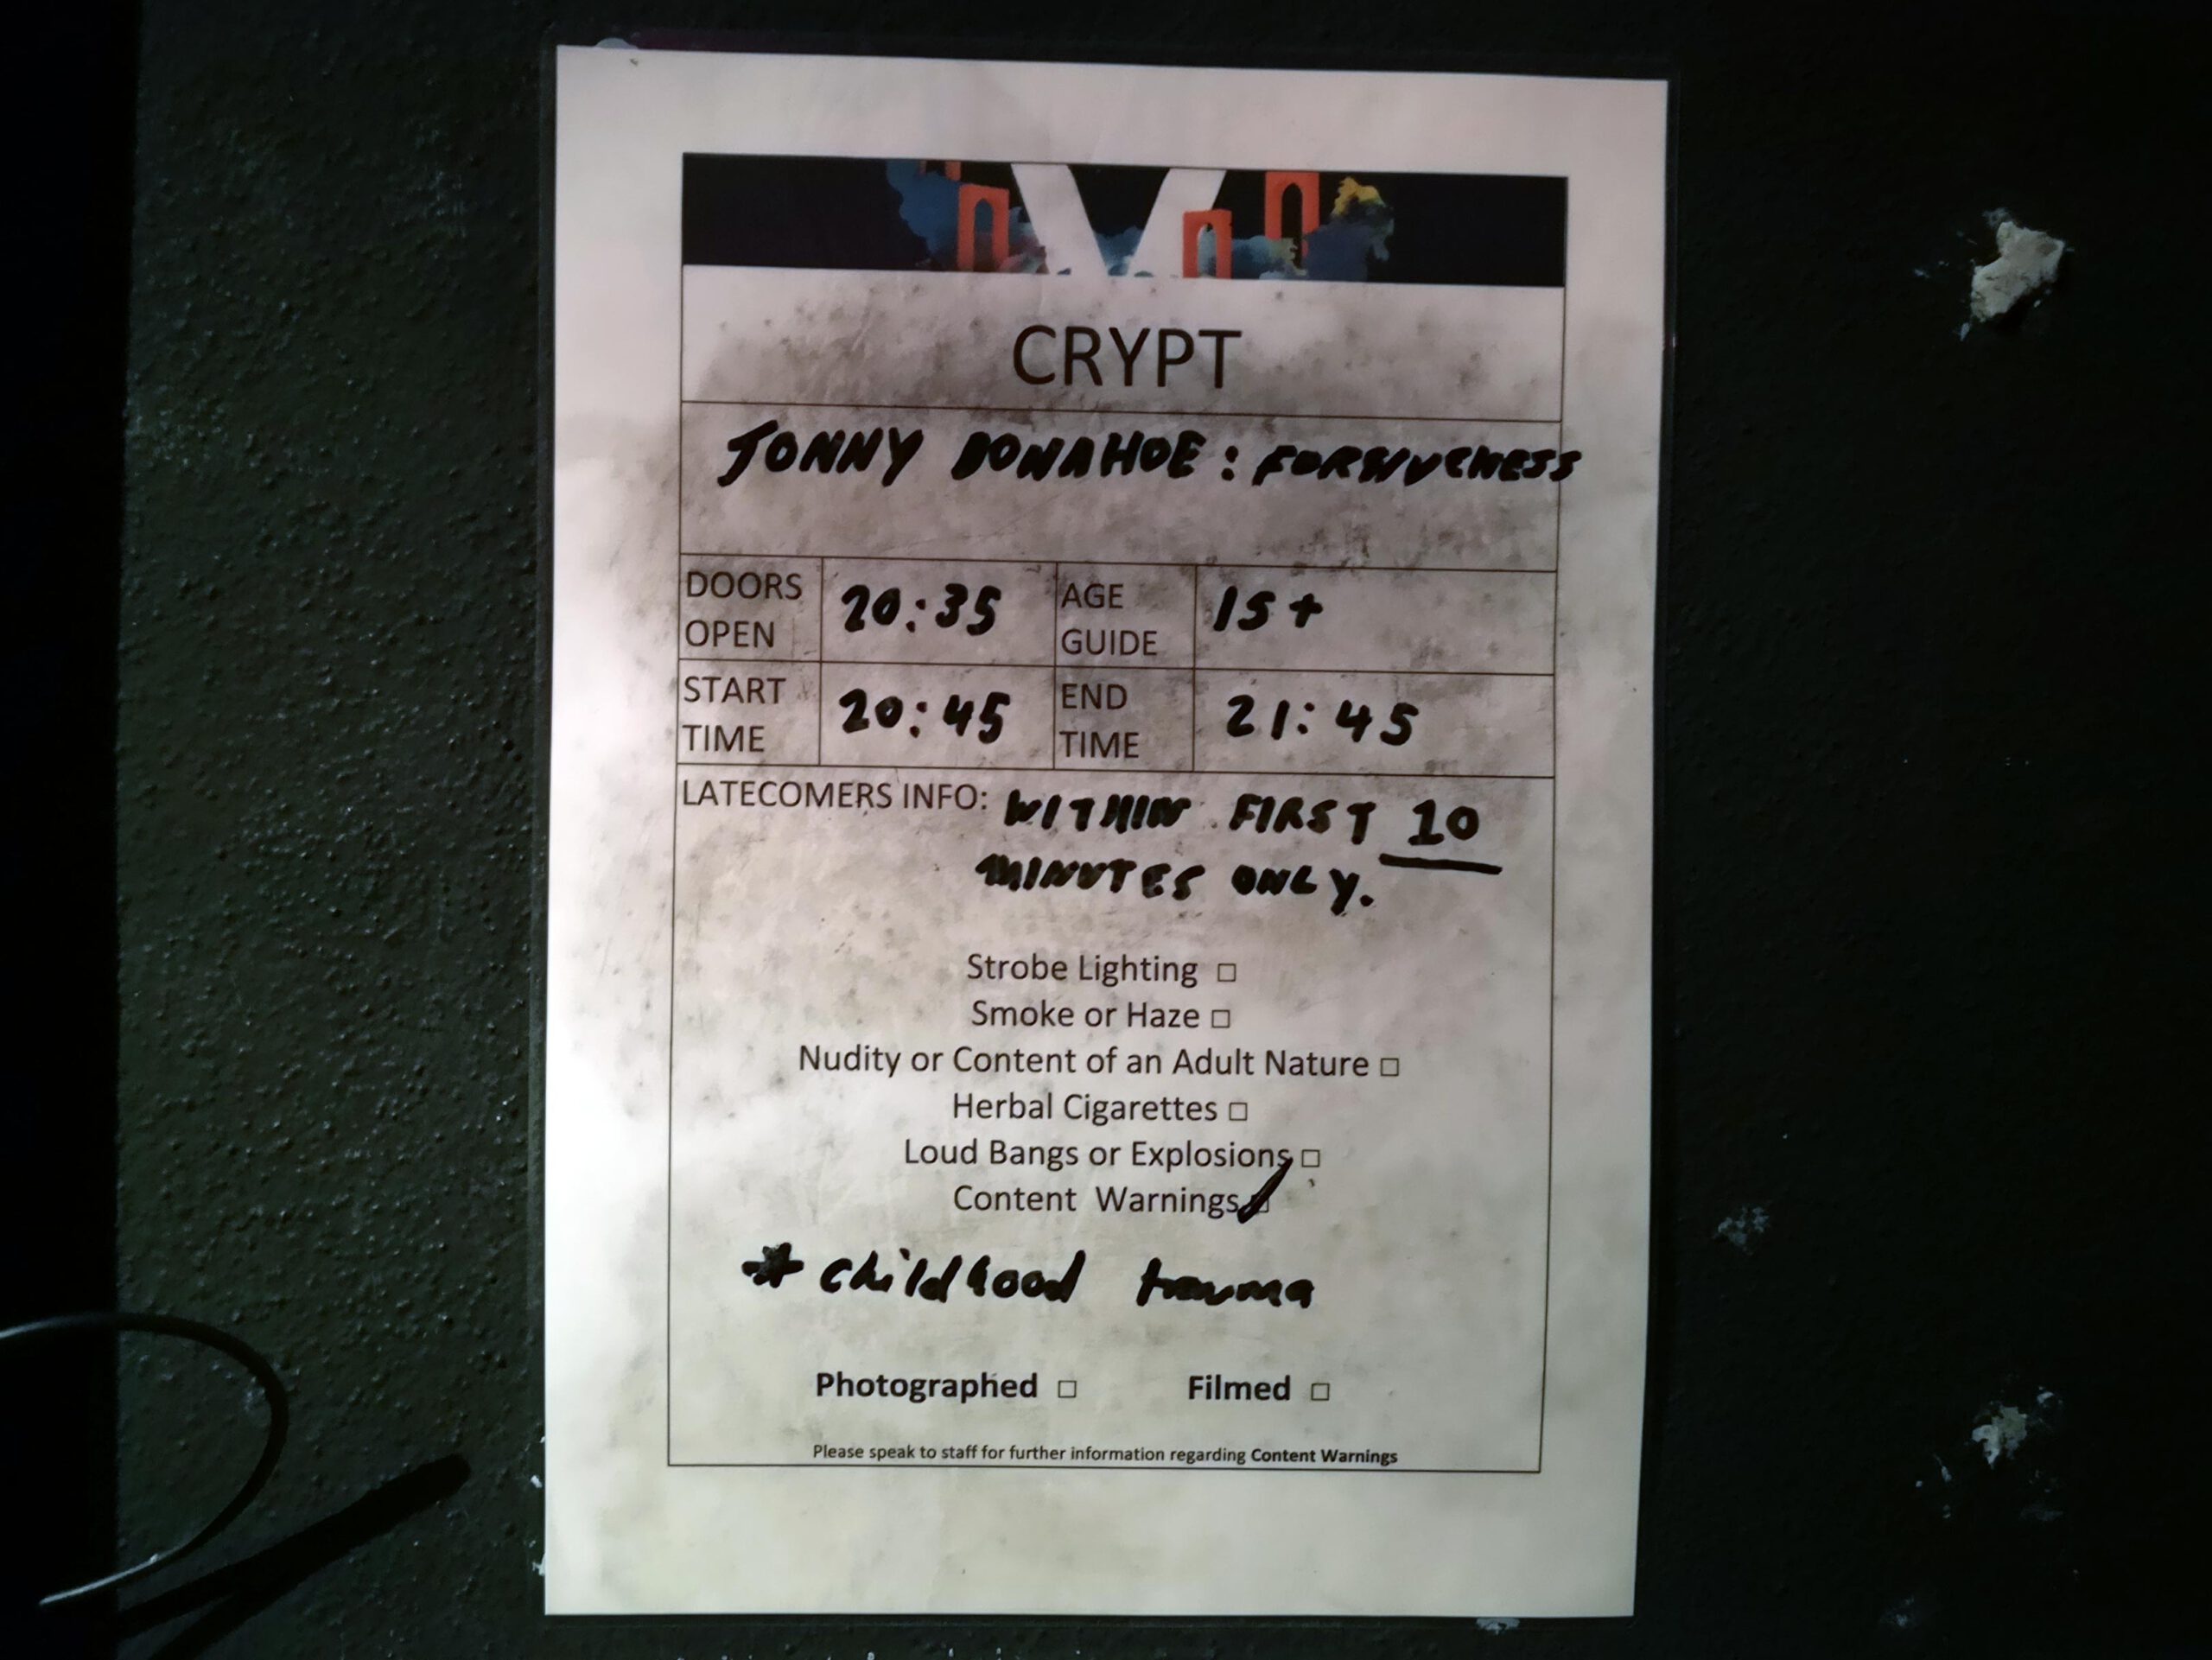 CRYPT
JONNY DONAHOE: FORGIVENESS
DOORS OPEN 20:35 AGE GUIDE 15+
START TIME 20:45 END TIME 21:45
LATECOMERS INFO: WITHIN FIRST 10
MINUTES ONLY.
Strobe Lighting ☐
Smoke or Haze ☐
Nudity or Content of an Adult Nature ☐
Herbal Cigarettes ☐
Loud Bangs or Explosions ☐
Content Warnings ☑
* childhood trauma
Photographed ☐ Filmed ☐
Please speak to staff for further information regarding Content Warnings